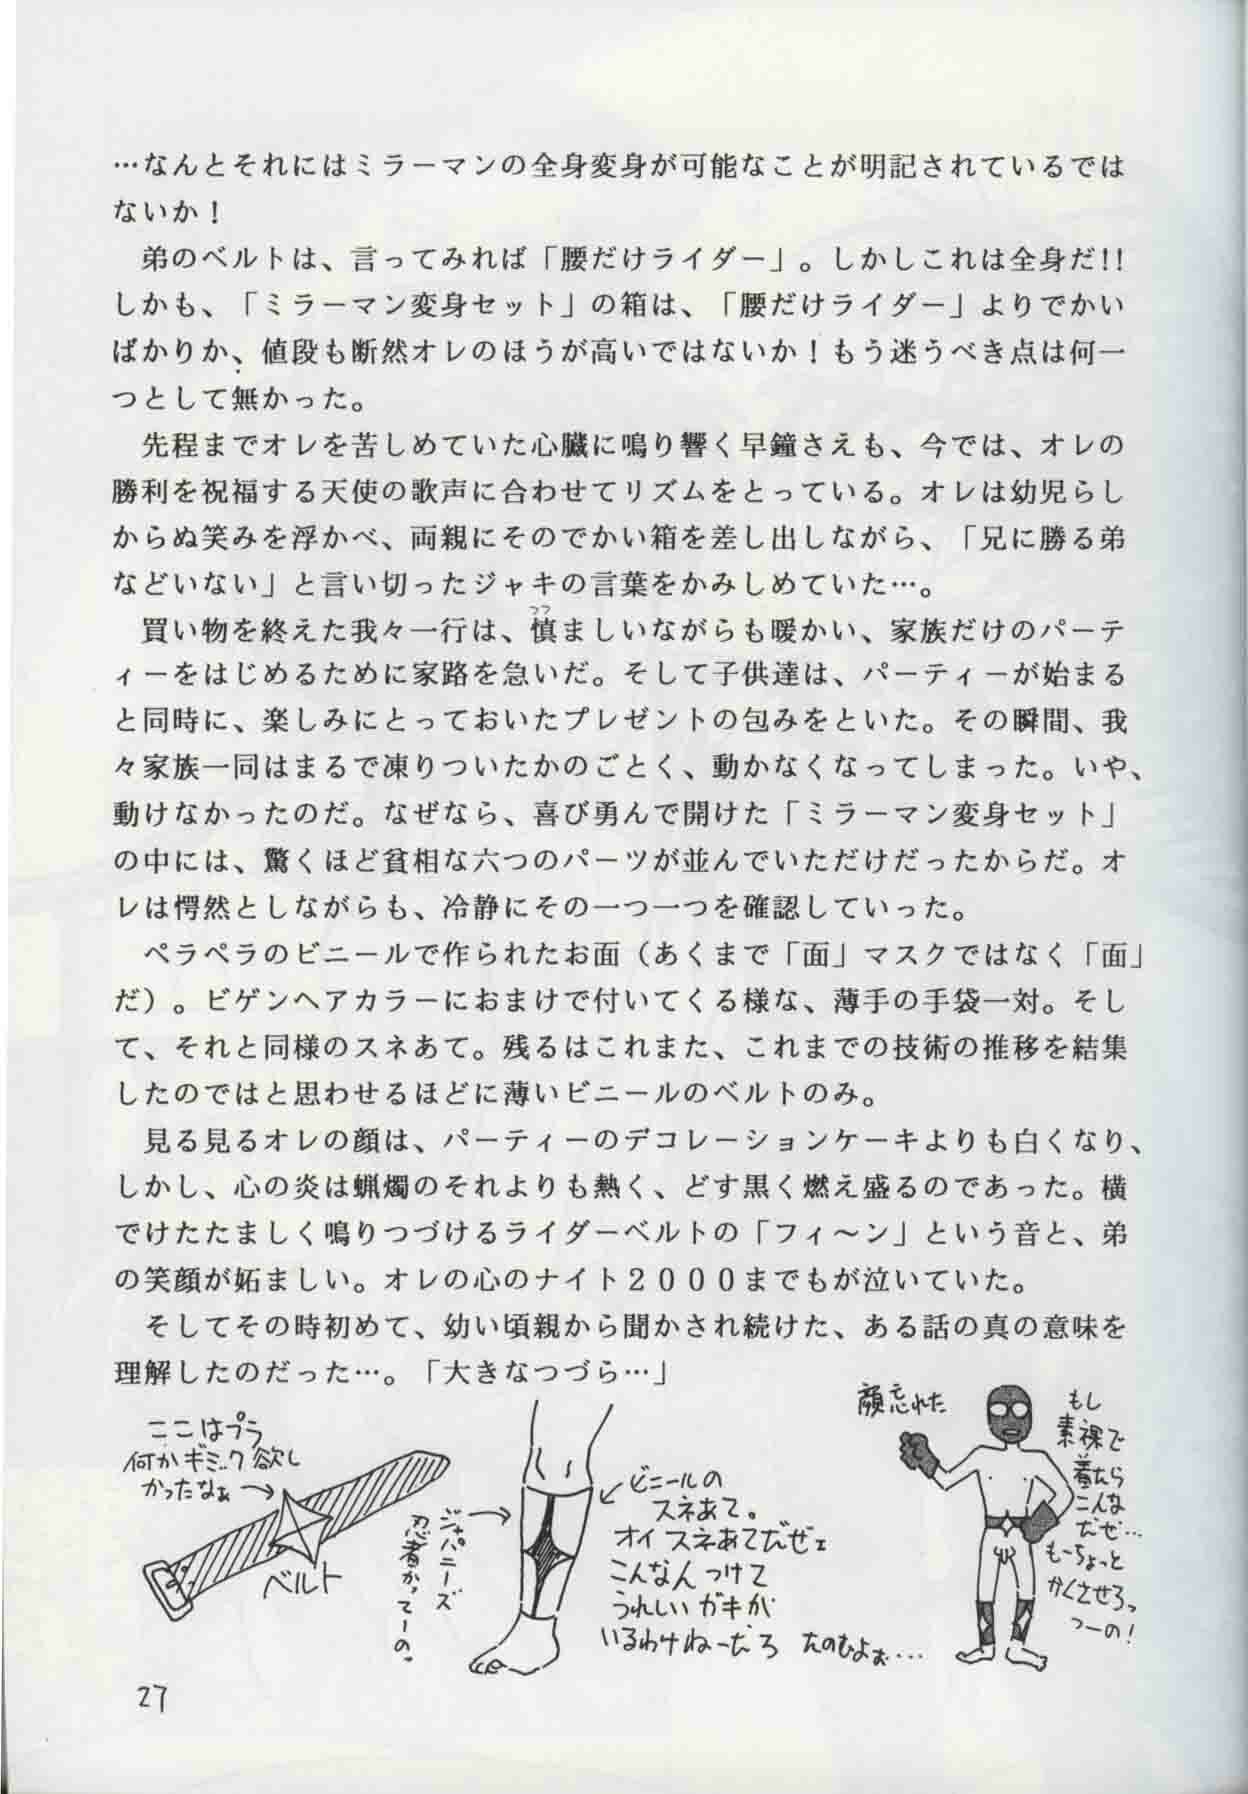 …なんとそれにはミラーマンの全身変身が可能なことが明記されているでは
ないか！
弟のベルトは、言ってみれば「腰だけライダー」。しかしこれは全身だ!!
しかも、「ミラーマン変身セット」の箱は、「腰だけライダー」よりでかい
ばかりか、値段も断然オレのほうが高いではないか！もう迷うべき点は何一
つとして無かった。
先程までオレを苦しめていた心臓に鳴り響く早鐘さえも、今では、オレの
勝利を祝福する天使の歌声に合わせてリズムをとっている。オレは幼児らし
からぬ笑みを浮かべ、両親にそのでかい箱を差し出しながら、「兄に勝る弟
などいない」と言い切ったジャキの言葉をかみしめていた…。
つつ
買い物を終えた我々一行は、慎ましいながらも暖かい、家族だけのパーテ
ィーをはじめるために家路を急いだ。そして子供達は、パーティーが始まる
と同時に、楽しみにとっておいたプレゼントの包みをといた。その瞬間、我
々家族一同はまるで凍りついたかのごとく、動かなくなってしまった。いや、
動けなかったのだ。なぜなら、喜び勇んで開けた「ミラーマン変身セット」
の中には、驚くほど貧相な六つのパーツが並んでいただけだったからだ。オ
レは愕然としながらも、冷静にその一つ一つを確認していった。
ペラペラのビニールで作られたお面（あくまで「面」マスクではなく「面」
だ）。ビゲンヘアカラーにおまけで付いてくる様な、薄手の手袋一対。そし
て、それと同様のスネあて。残るはこれまた、これまでの技術の推移を結集
したのではと思わせるほどに薄いビニールのベルトのみ。
見る見るオレの顔は、パーティーのデコレーションケーキよりも白くなり、
しかし、心の炎は蝋燭のそれよりも熱く、どす黒く燃え盛るのであった。横
でけたたましく鳴りつづけるライダーベルトの「フィ～ン」という音と、弟
の笑顔が妬ましい。オレの心のナイト２０００までもが泣いていた。
そしてその時初めて、幼い頃親から聞かされ続けた、ある話の真の意味を
理解したのだった…。「大きなつづら…」
ここはプラ
何かギミック欲し
かったなぁ
ベルト
ジャパニーズ
忍者かってーの。
ビニールの
スネあて。
オイ スネあてだぜェ
こんなん つけて
うれしい ガキが
いるわけねーだろ たのむよぉ…
顔忘れた
もし
素裸で
着たら
こんな
だぜ…
もーちょっと
かくさせろっ
つーの！
27